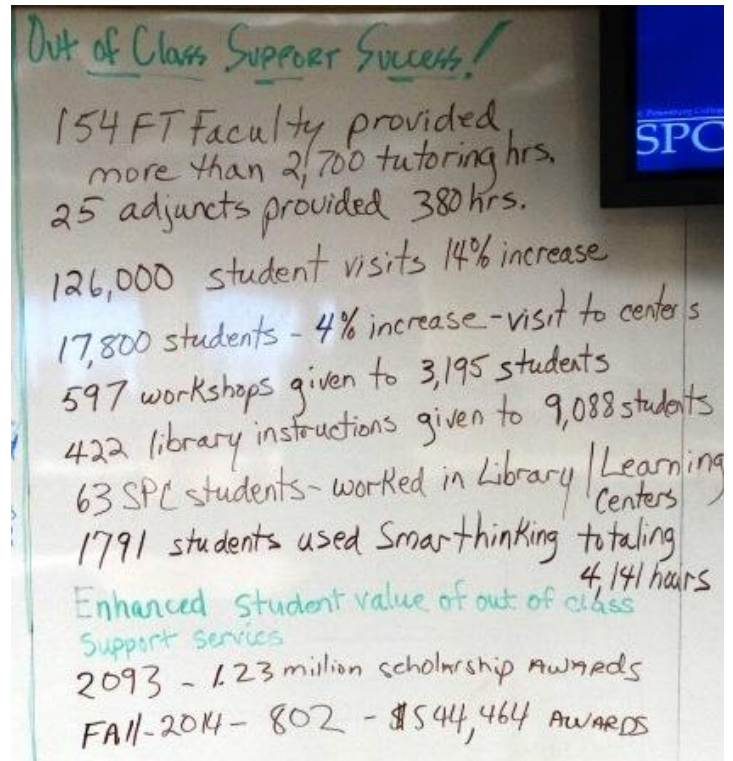 Out of Class Support Success!
154 FT Faculty provided
more than 2,700 tutoring hrs.
25 adjuncts provided 380 hrs.
126,000 student visits 14% increase
17,800 students - 4% increase - visit to centers
597 workshops given to 3,195 students
422 library instructions given to 9,088 students
63 SPC students - worked in Library / Learning
Centers
1791 students used Smarthinking totaling
4,141 hours
Enhanced student value of out of class
Support services
2093 - 1.23 million scholarship AWARDS
FAll-2014 - 802 - $544,464 AWARDS
St. Petersburg College
SPC